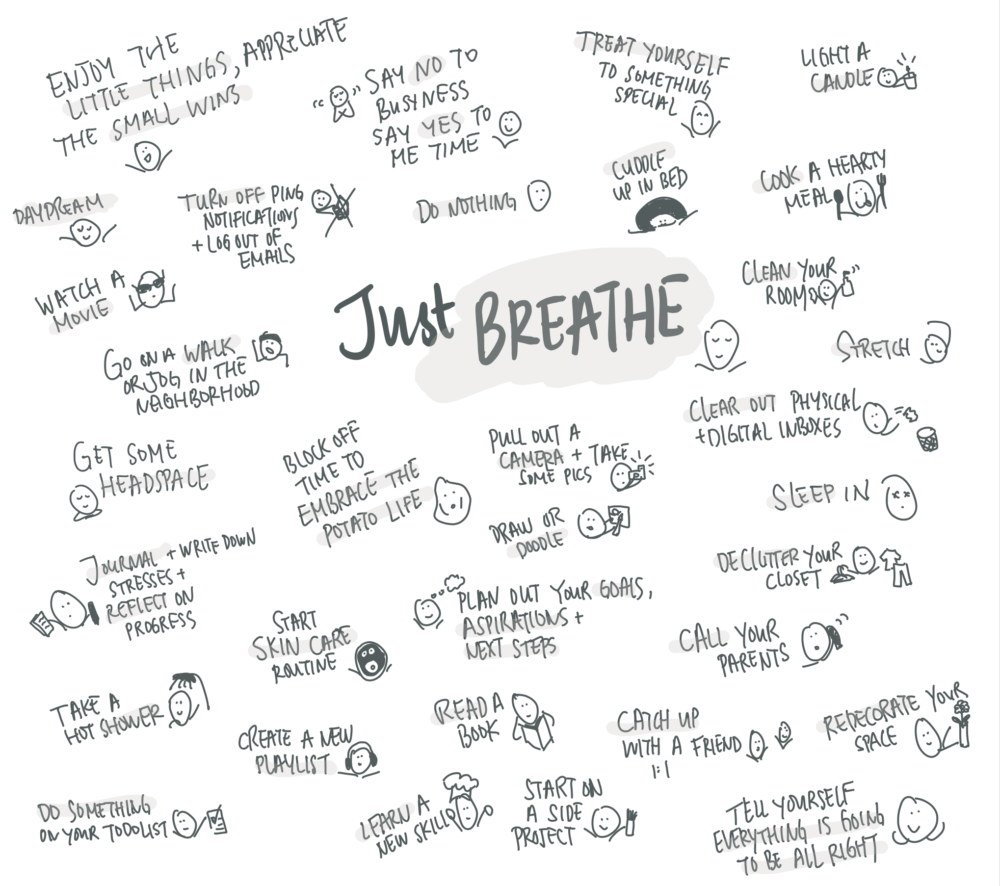 ENJOY THE
LITTLE THINGS, APPRECIATE
THE SMALL WINS
SAY NO TO
BUSYNESS
SAY YES TO
ME TIME
TREAT YOURSELF
TO SOMETHING
SPECIAL
LIGHT A
CANDLE
DAYDREAM
TURN OFF PING
NOTIFICATIONS
+ LOG OUT OF
EMAILS
DO NOTHING
CUDDLE
UP IN BED
COOK A HEARTY
MEAL
WATCH A
MOVIE
Just BREATHE
CLEAN YOUR
ROOM
GO ON A WALK
OR JOG IN THE
NEIGHBORHOOD
STRETCH
GET SOME
HEADSPACE
BLOCK OFF
TIME TO
EMBRACE THE
POTATO LIFE
PULL OUT A
CAMERA + TAKE
SOME PICS
CLEAR OUT PHYSICAL
+ DIGITAL INBOXES
DRAW OR
DOODLE
SLEEP IN
JOURNAL + WRITE DOWN
STRESSES +
REFLECT ON
PROGRESS
START
SKIN CARE
ROUTINE
PLAN OUT YOUR GOALS,
ASPIRATIONS +
NEXT STEPS
DECLUTTER YOUR
CLOSET
CALL YOUR
PARENTS
TAKE A
HOT SHOWER
CREATE A NEW
PLAYLIST
READ A
BOOK
CATCH UP
WITH A FRIEND
1:1
REDECORATE YOUR
SPACE
DO SOMETHING
ON YOUR TODO LIST
LEARN A
NEW SKILL
START ON
A SIDE
PROJECT
TELL YOURSELF
EVERYTHING IS GOING
TO BE ALL RIGHT